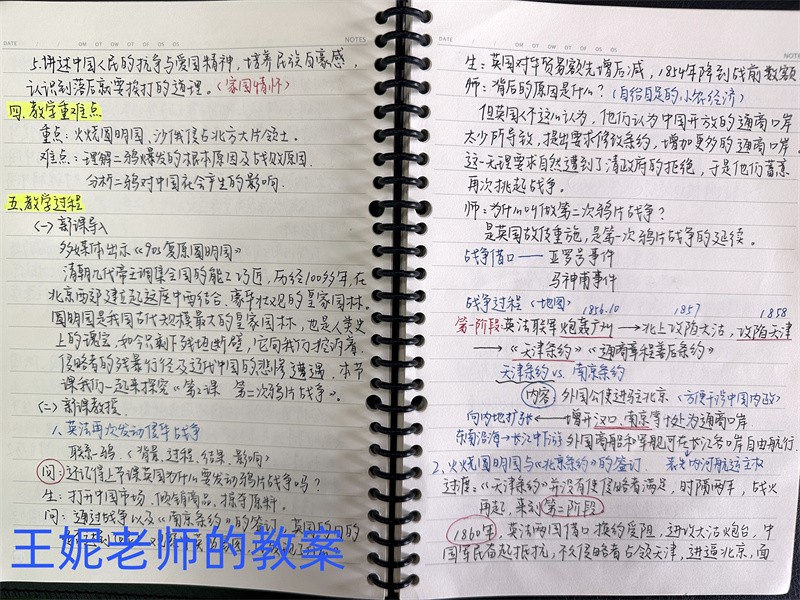 DATE
NOTES
5.讲述中国人民的抗争与爱国精神,培养民族自豪感,
认识到落后就要挨打的道理。(家国情怀)
四、教学重难点
重点:火烧圆明园、沙俄侵占北方大片领土。
难点:理解二鸦爆发的根本原因及战败原因.
分析二鸦对中国社会产生的影响.
五、教学过程
(一)新课导入
多媒体出示《90s复原圆明园》
清朝几代帝王调集全国的能工巧匠,历经100多年,在
北京西郊建立起这座中西结合、豪华壮观的皇家园林.
圆明园是我国古代规模最大的皇家园林,也是人类史
上的瑰宝,如今只剩下残垣断壁,它向我们控诉着
侵略者的残暴行径及近代中国的悲惨遭遇.本节
课我们一起来探究《第2课 第二次鸦片战争》.
(二)新课教授
1、英法再次发动侵华战争
联系一鸦(背景、过程、结果、影响)
问:还记得上节课英国为什么要发动鸦片战争吗?
生:打开中国市场、倾销商品、掠夺原料.
问:通过战争以及《南京条约》的签订,英国的目的
王妮老师的教案
DATE
NOTES
生:英国对华贸易额先增后减,1854年降到战前数额
师:背后的原因是什么?(自给自足的小农经济)
但英国人不这么认为,他们认为中国开放的通商口岸
太少所导致,提出要求修改条约,增加更多的通商口岸.
这一无理要求自然遭到了清政府的拒绝,于是他们蓄意
再次挑起战争。
师:为什么叫做第二次鸦片战争?
是英国故伎重施,是第一次鸦片战争的延续.
战争借口——亚罗号事件
马神甫事件
战争过程(地图) 1856.10 1857 1858
第一阶段:英法联军炮轰广州→北上攻陷大沽,攻陷天津
→《天津条约》《通商章程善后条约》
天津条约vs.南京条约
内容 外国公使进驻北京(方便干涉中国内政)
向内地扩张←增开汉口、南京等十处为通商口岸
东南沿海→长江中下游 外国商船和军舰可在长江各口岸自由航行.
2、火烧圆明园与《北京条约》的签订. 丧失内河航运主权
过渡:《天津条约》并没有使侵略者满足,时隔两年,战火
再起,来到第二阶段
1860年,英法两国借口换约受阻,进攻大沽炮台,中
国军民奋起抵抗,不久侵略者占领天津,进逼北京,面